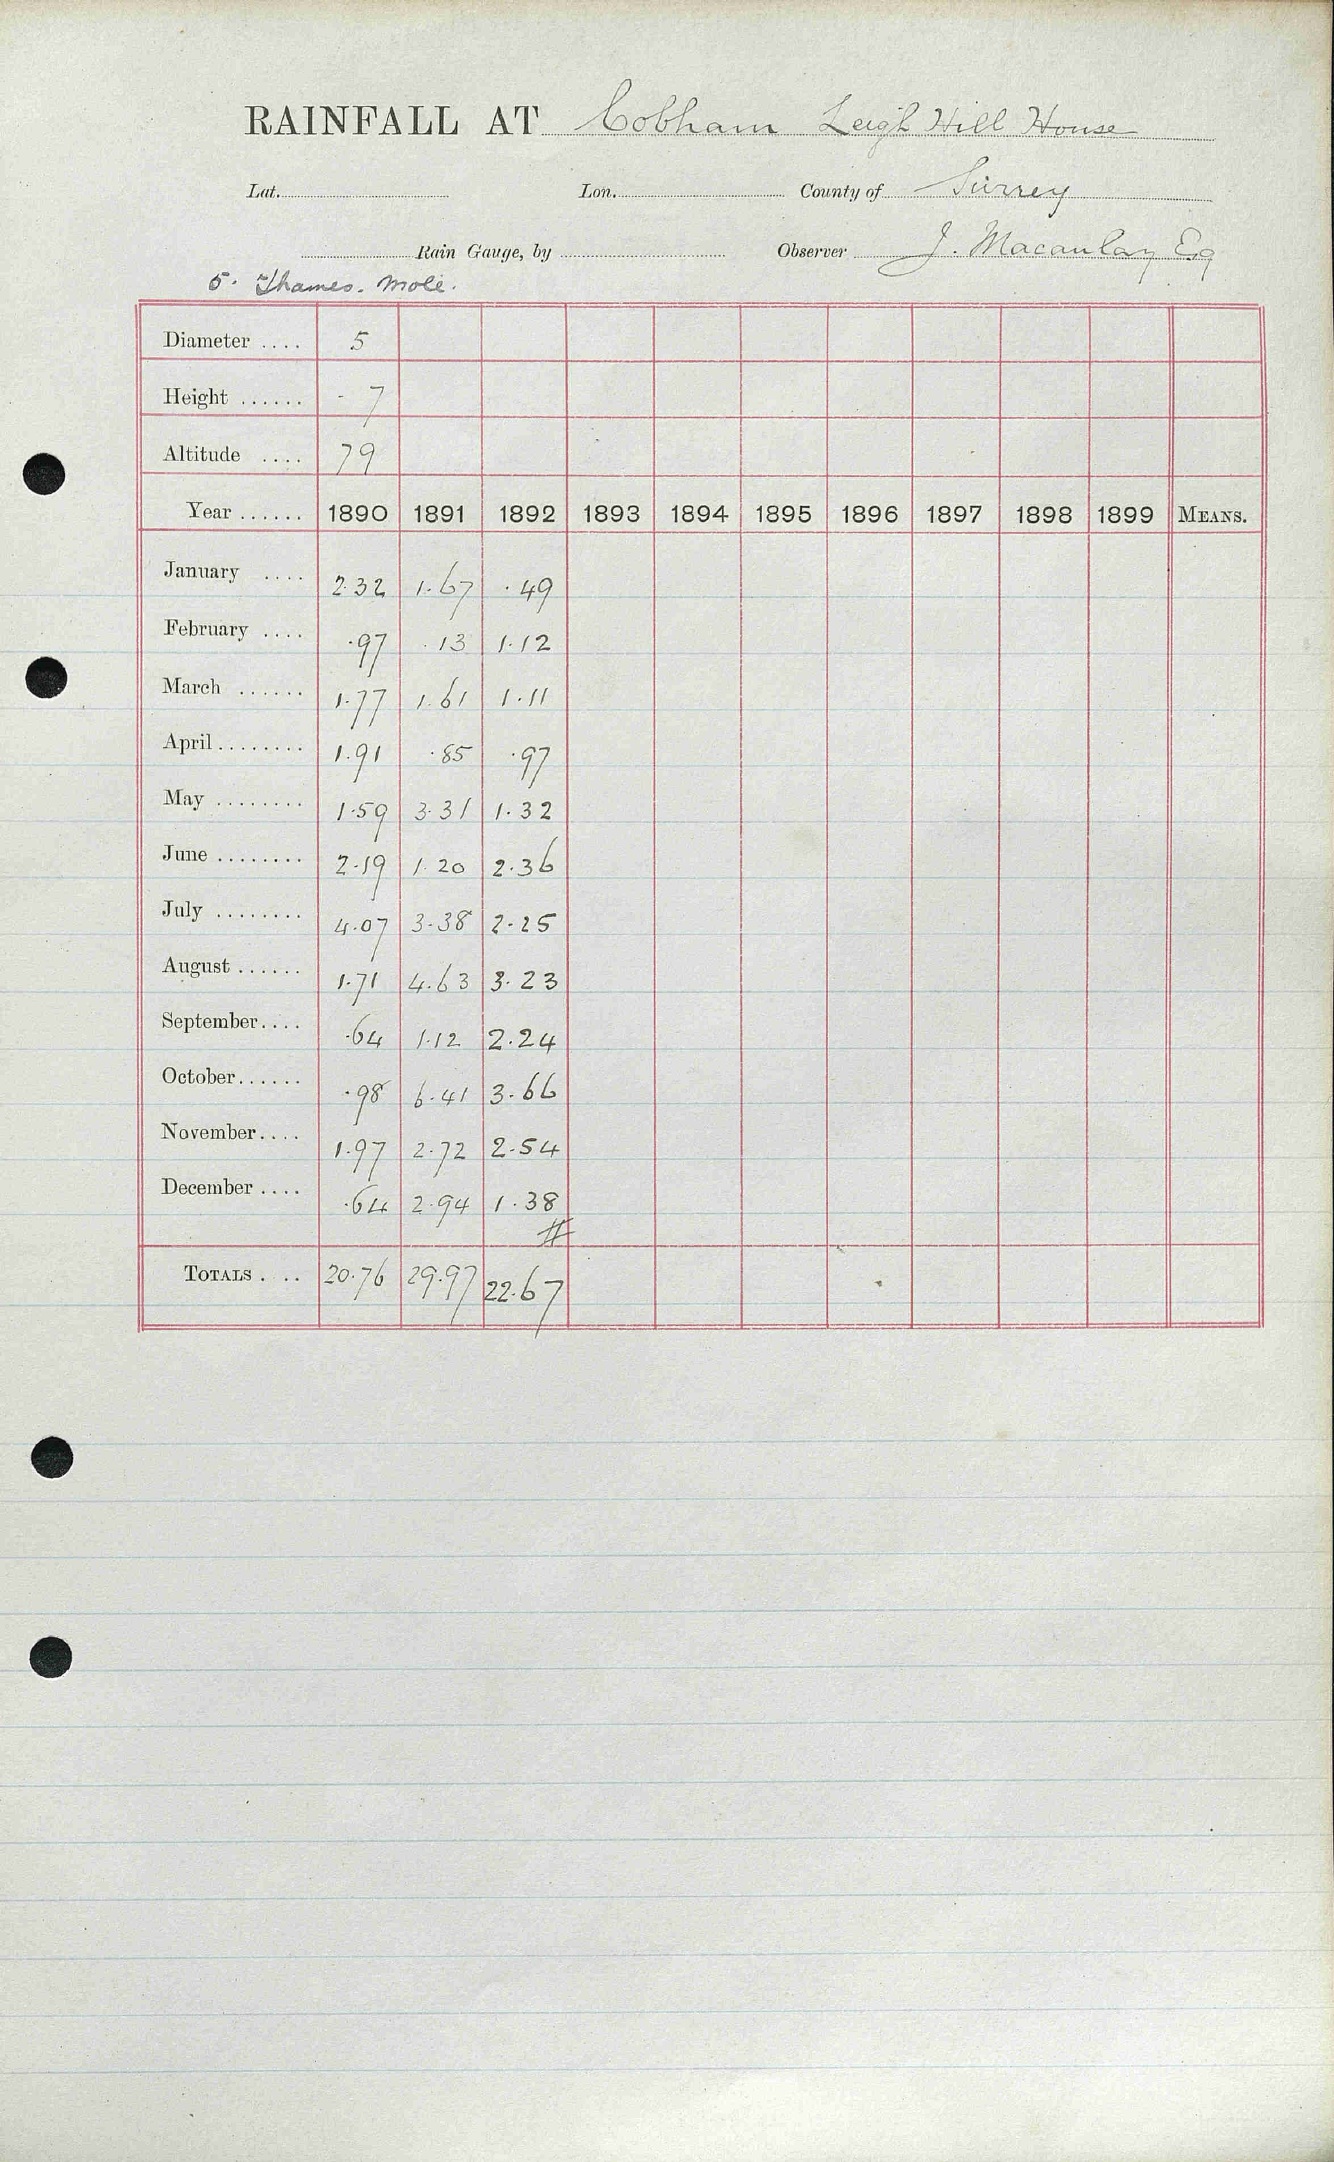 RAINFALL AT Cobham Leigh Hill House
Lat. Lon. County of Surrey
Rain Gauge, by Observer J. Macaulay Esq
5. Thames. Mole.
Diameter .... 5
Height ...... - 7
Altitude .... 79
Year ...... 1890 1891 1892 1893 1894 1895 1896 1897 1898 1899 MEANS.
January .... 2.32 1.67 .49
February .... .97 .13 1.12
March ...... 1.77 1.61 1.11
April ........ 1.91 .85 .97
May ........ 1.59 3.31 1.32
June ........ 2.19 1.20 2.36
July ........ 4.07 3.38 2.25
August ...... 1.71 4.63 3.23
September .... .64 1.12 2.24
October ...... .98 6.41 3.66
November .... 1.97 2.72 2.54
December .... .64 2.94 1.38
#
TOTALS . .. 20.76 29.97 22.67